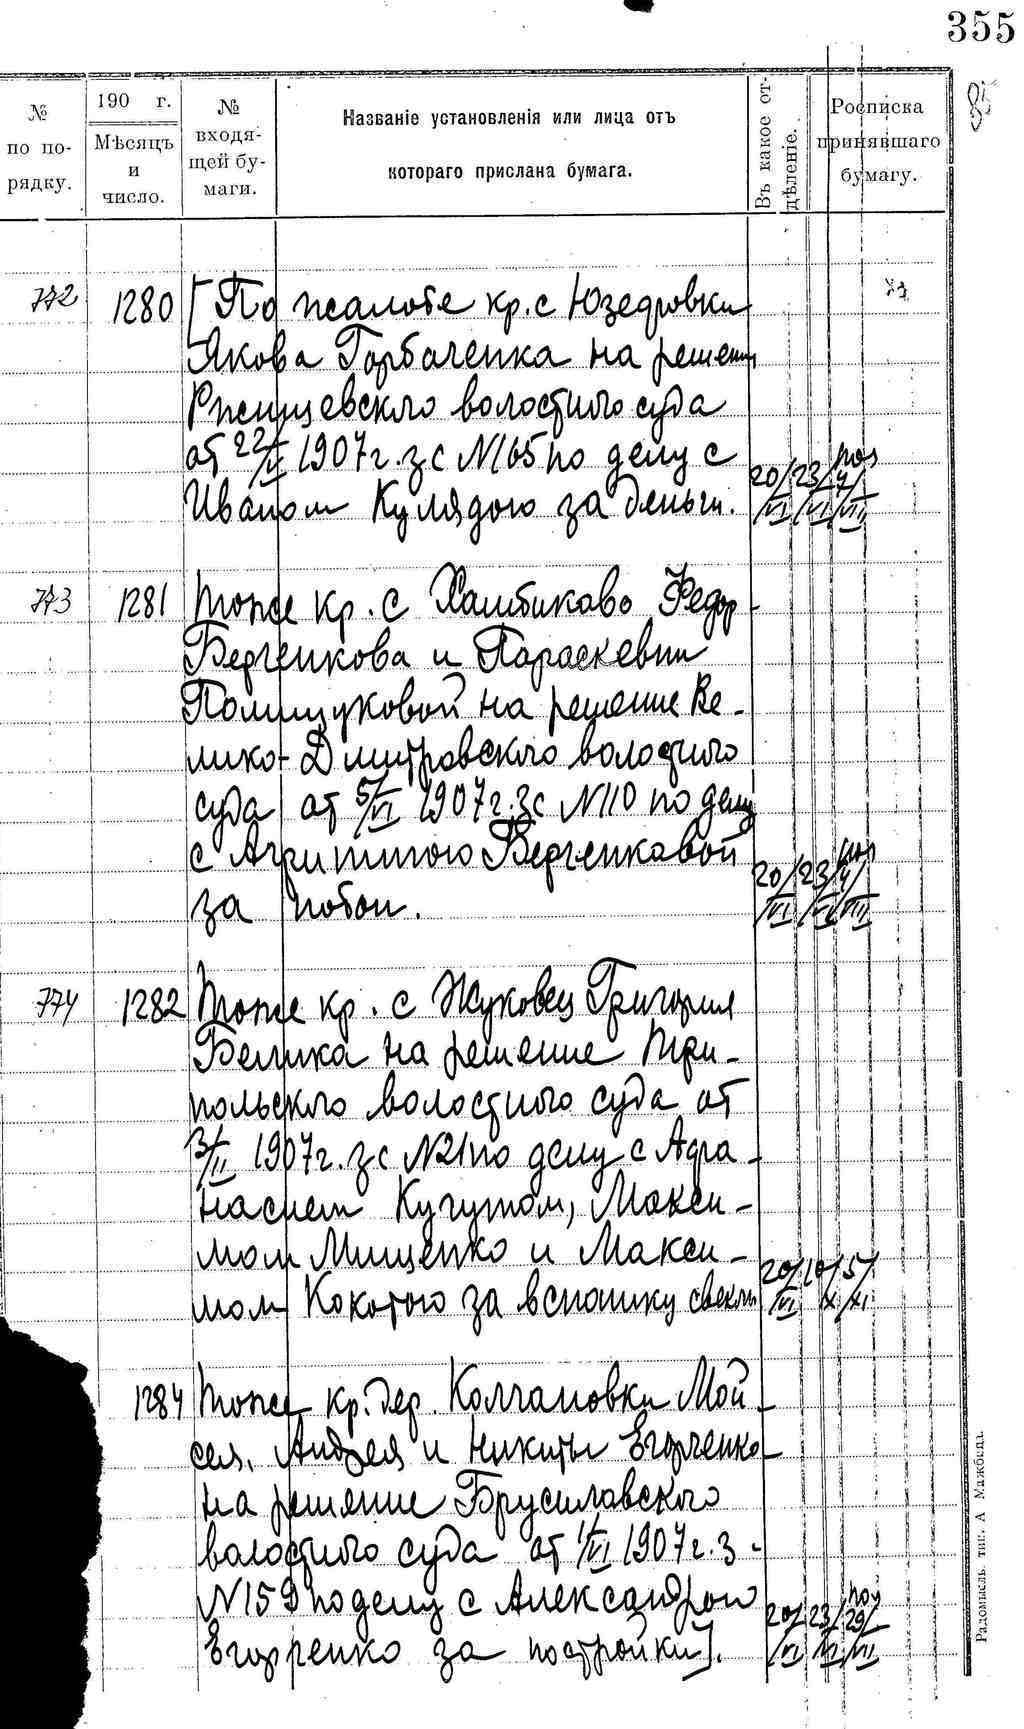 355
№ по по-рядку.
190 г. Мѣсяцъ и число.
№ входя-щей бу-маги.
Названіе установленія или лица отъ
котораго прислана бумага.
Въ какое от-дѣленіе.
Росписка принявшаго бумагу.
772 1280 [По жалобе кр. с Юзефовки
Якова Горбаченка на решение
Ржищевскго волостного суда
от 22/II 1907 г. з с №165 по делу с
Иваном Кулядою за деньги. 20/VI 23/VI 4/VII
773 1281 тоже кр. с Хамбикова Федор
Берченкова и Параскевии
Полищуковой на решение Ве-
лико-Дмитровскго волостного
суда от 5/VI 1907 г. з с №110 по делу
с Агрипиною Берченковой
за побои. 20/VI 23/VI 4/VII
774 1282 тоже кр. с Жуковец Григория
Белика на решение Три-
польскго волостного суда от
3/II 1907 г. з с №21 по делу с Афа-
насием Кучутом, Макси-
мом Мищенко и Макси-
мом Кокотою за вспашку свеклы 20/VI 10/X 5/XI
1284 тоже кр. дер. Колчановки Мой-
сея, Андрея и Никиты Егорченко
на решение Брусиловского
волостного суда от 1/VI 1907 г. з-
№159 по делу с Александрой
Егорченко за постройки]. 20/VI 23/VI 29/VII
Радомысль. тип. А Мажбица.